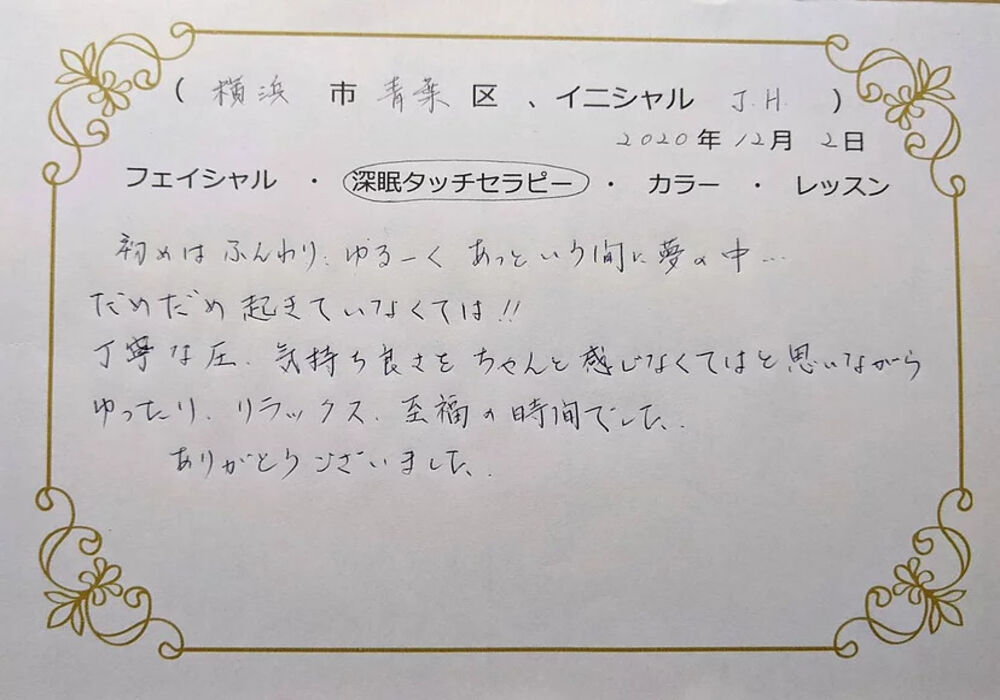 ( 横浜 市 青葉 区 、イニシャル J.H. )
2020年12月 2日
フェイシャル ・ 深眠タッチセラピー ・ カラー ・ レッスン
初めは ふんわり、ゆるーく あっという間に夢の中…
だめだめ 起きていなくては!!
丁寧な圧、気持ち良さを ちゃんと感じなくてはと思いながら
ゆったり、リラックス、至福の時間でした。
ありがとうございました。